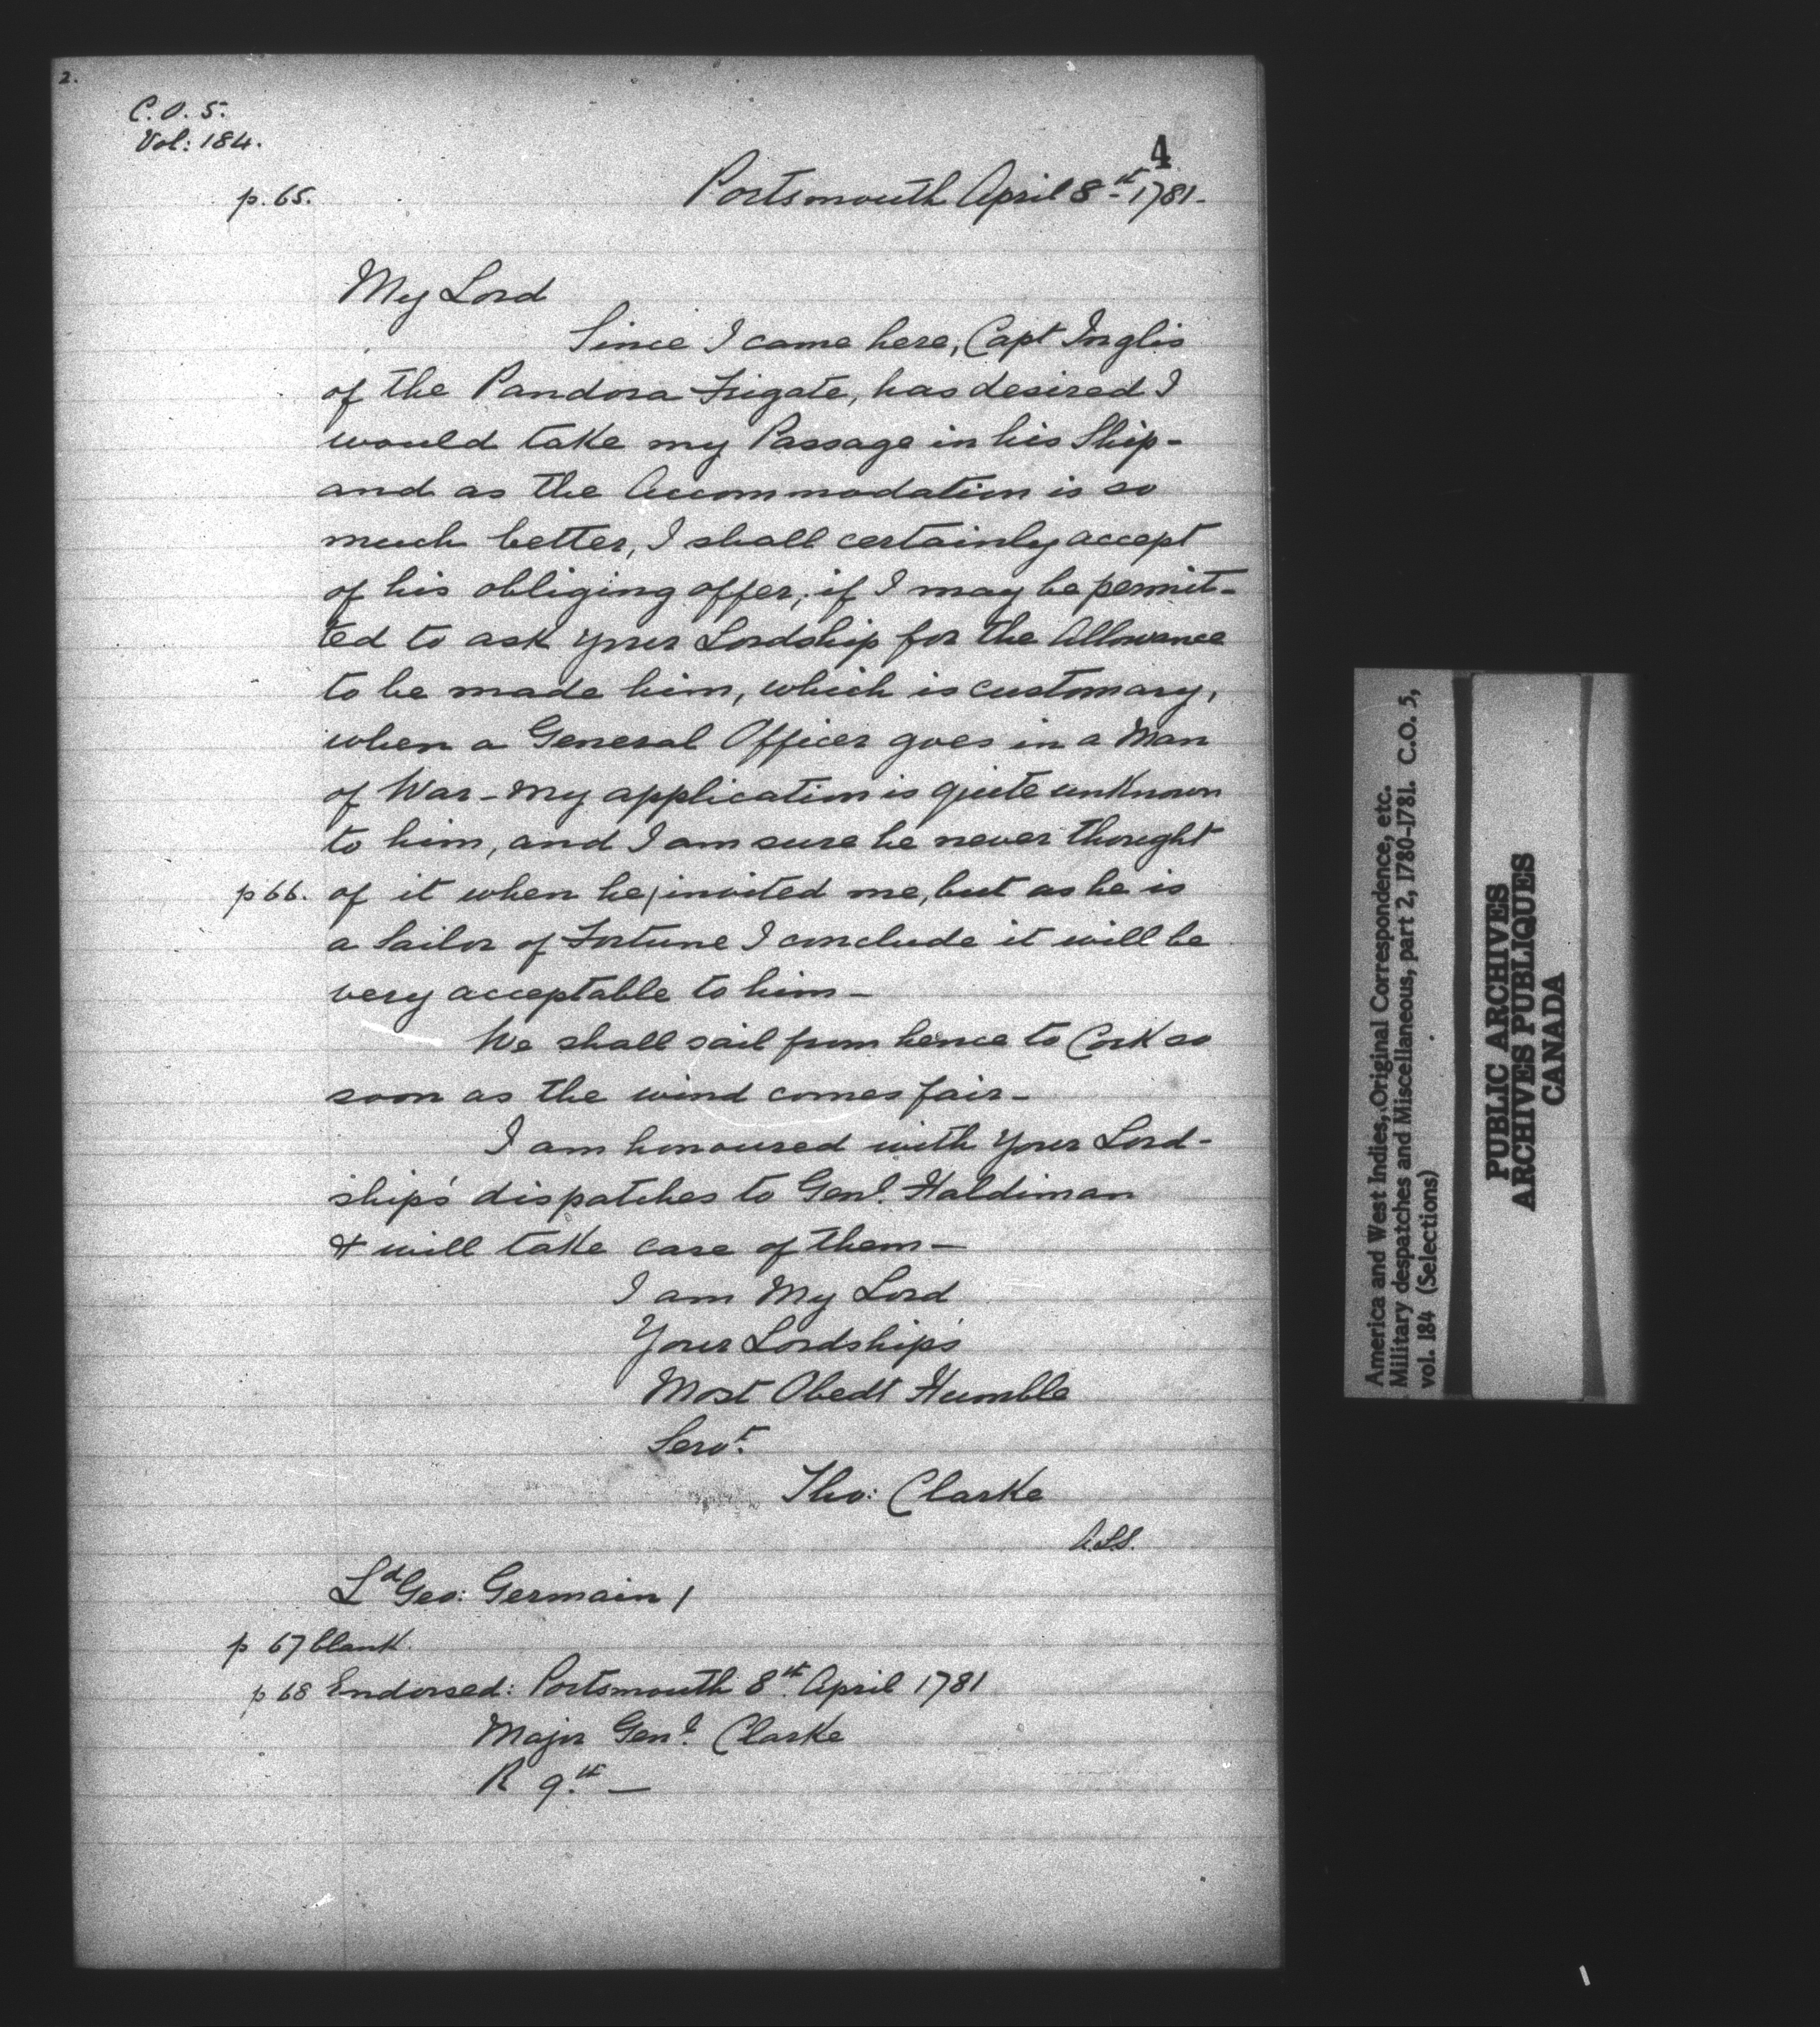 2.
C.O. 5.
Vol: 184.
4
p. 65.
Portsmouth April 8th 1781-
My Lord
Since I came here, Capt Inglis
of the Pandora Frigate, has desired I
would take my Passage in his Ship-
and as the Accommodation is so
much better, I shall certainly accept
of his obliging offer, if I may be permit-
ted to ask your Lordship for the Allowance
to be made him, which is customary,
when a General Officer goes in a Man
of War - My application is quite unknown
to him, and I am sure he never thought
p 66. of it when he / invited me, but as he is
a Sailor of Fortune I conclude it will be
very acceptable to him -
We shall sail from hence to Cork so
soon as the wind comes fair -
I am honoured with Your Lord-
ship's dispatches to Genl. Haldiman
& will take care of them -
I am My Lord
Your Lordship's
Most Obedt Humble
Servt.
Tho: Clarke
A.L.S.
Ld Geo: Germain /
p 67 blank.
p 68 Endorsed: Portsmouth 8th. April 1781
Major Genl. Clarke
R 9.th -
America and West Indies, Original Correspondence, etc.
Military despatches and Miscellaneous, part 2, 1780-1781. C.O. 5,
vol. 184 (Selections)
PUBLIC ARCHIVES
ARCHIVES PUBLIQUES
CANADA